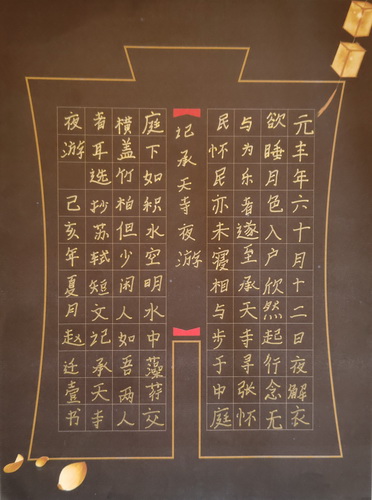 元丰年六十月十二日夜解衣
欲睡月色入户欣然起行念无
与为乐者遂至承天寺寻张怀
民怀民亦未寝相与步于中庭
记承天寺夜游
庭下如积水空明水中藻荇交
横盖竹柏但少闲人如吾两人
者耳选抄苏轼短文记承天寺
夜游 己亥年夏月赵迁壹书